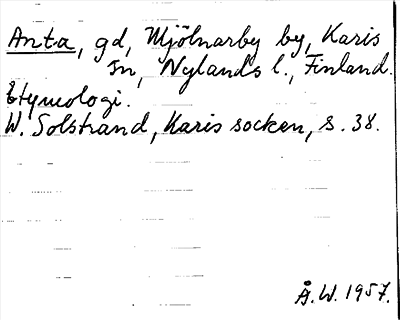 Anta, gd, Mjölnarby by, Karis
sn, Nylands l., Finland.
Etymologi.
W. Solstrand, Karis socken, s. 38.
Å.W. 1957.